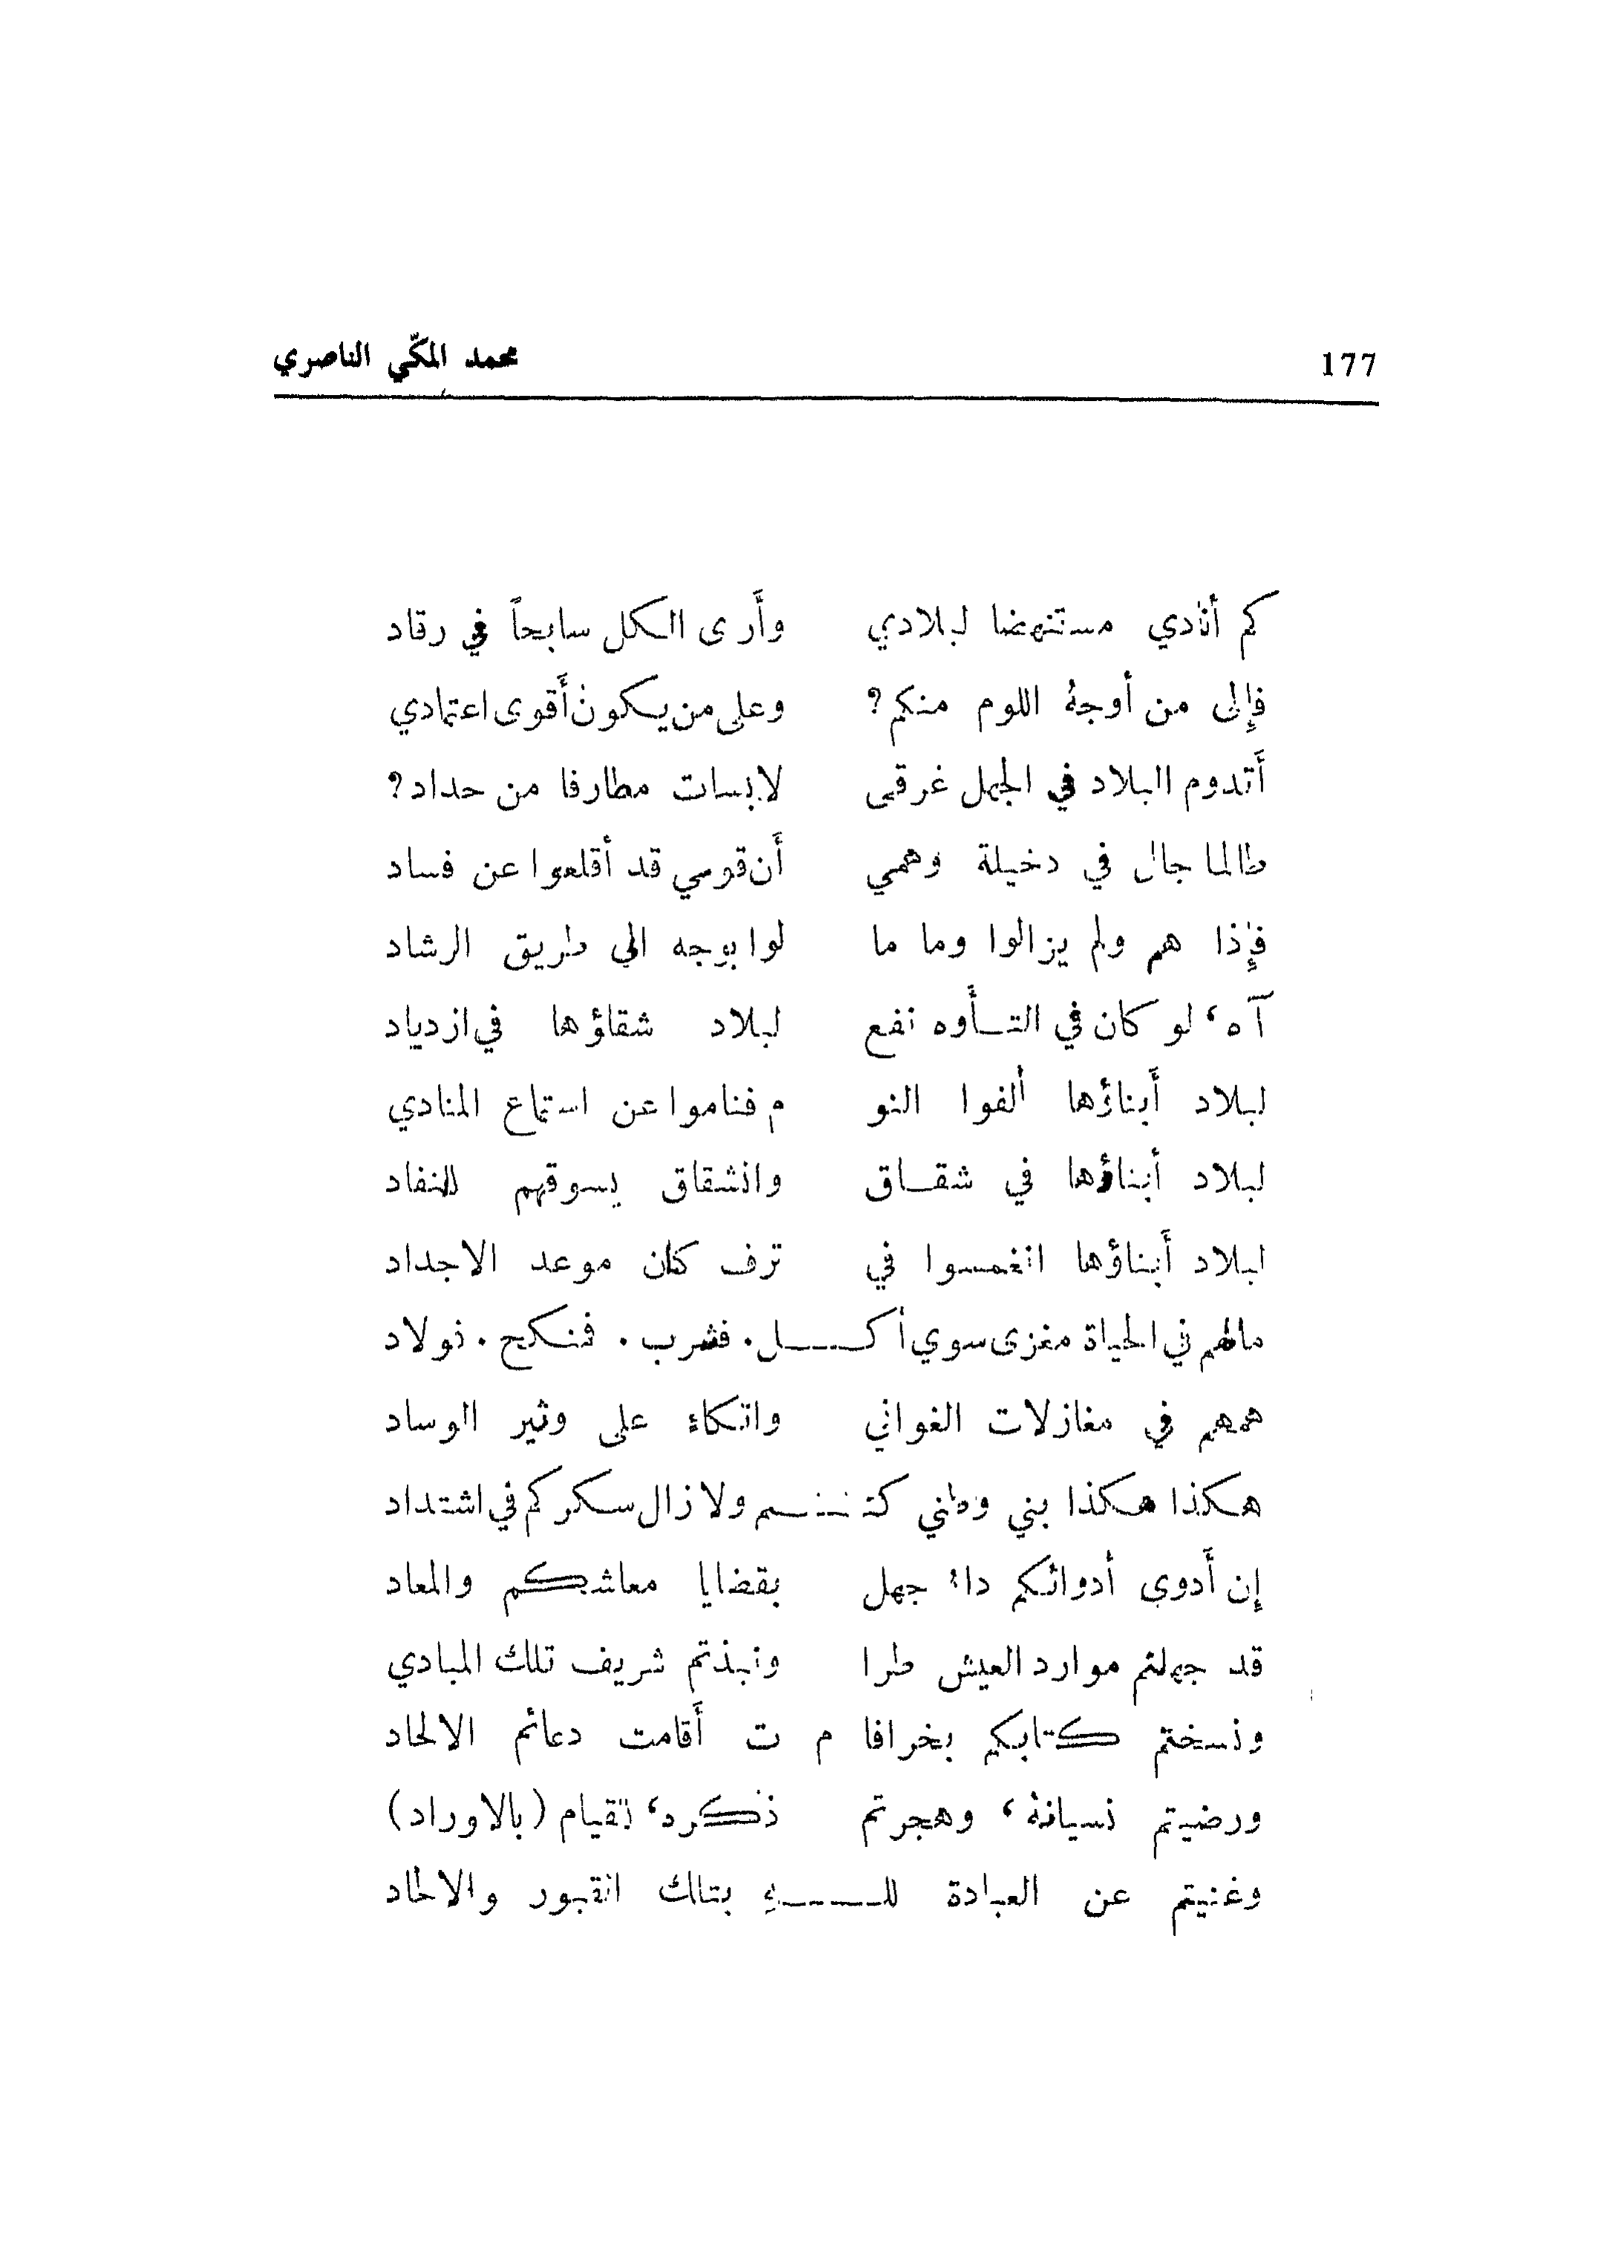 177 محمد المكّي الناصري
كم أنادي مستنهضا لبلادي وأرى الكل سابحاً في رقاد
فإلى من أوجهُ اللوم منكم؟ وعلى من يكون أقوى اعتمادي
أتدوم البلاد في الجهل غرقى لابسات مطارفا من حداد؟
طالما جال في دخيلة وهمي أن قومي قد أقلعوا عن فساد
فإذا هم ولم يزالوا وما ما لوا بوجه الى طريق الرشاد
آه، لو كان في التـأوه نفع لبلاد شقاؤها في ازدياد
لبلاد أبناؤها ألفوا النو م فناموا عن استماع المنادي
لبلاد أبناؤها في شقـاق وانشقاق يسوقهم للنفاد
لبلاد أبناؤها انغمسوا في ترف كان موعد الاجداد
مالهم في الحياة مغزى سوي أكــــل. فشرب. فمنكح. فولاد
همهم في مغازلات الغواني واتكاء على وثير الوساد
هكذا هكذا بني وطني كنتــــم ولا زال سكركم في اشتداد
إن أدوى أدوائكم داء جهل بقضايا معاشكم والمعاد
قد جهلتم موارد العيش طرا ونبذتم شريف تلك المبادي
ونسختم كتابكم بخرافا م ت أقامت دعائم الالحاد
ورضيتم نسيانهُ، وهجرتم ذكره، لقيام (بالاوراد)
وغنيتم عن العبادة للــــهِ بتلك القبور والالحاد